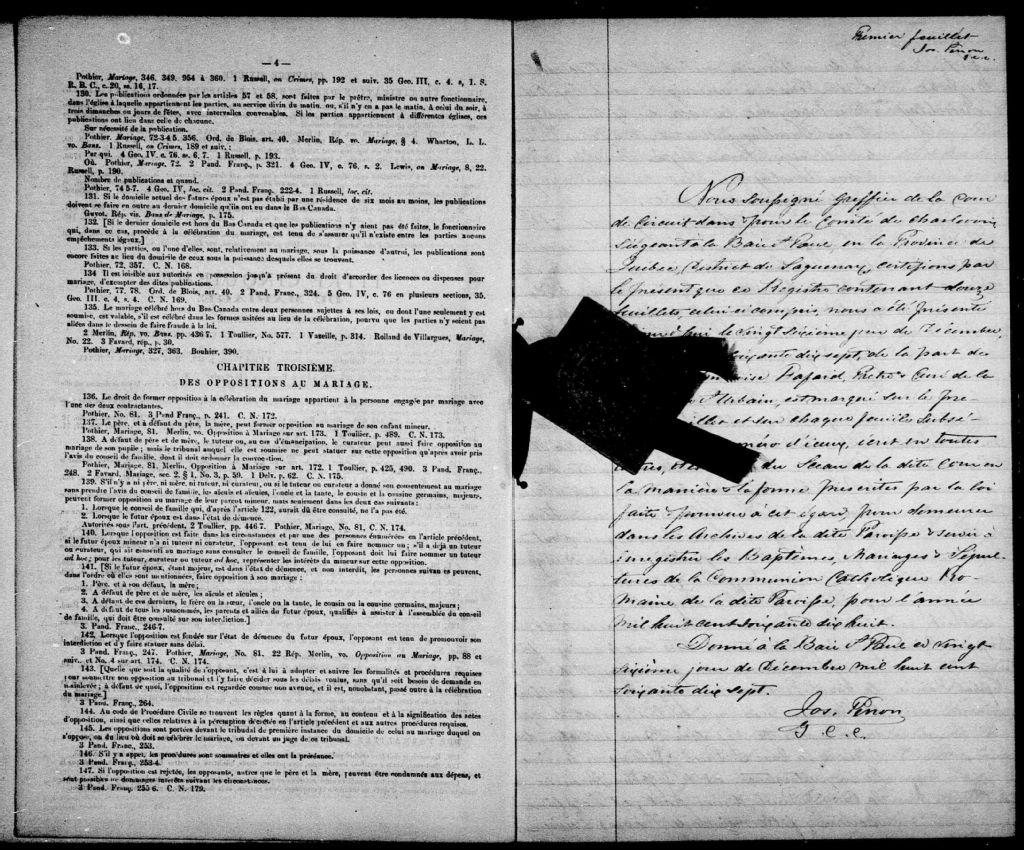 — 4 —
Pothier, Mariage, 346. 349. 954 à 360. 1 Russell, on Crimes, pp. 192 et suiv. 35 Geo. III, c. 4. s, 1. S.
R. B. C., c. 20, ss. 16, 17.
130. Les publications ordonnées par les articles 57 et 58, sont faites par le prêtre, ministre ou autre fonctionnaire,
dans l'église à laquelle appartiennent les parties, au service divin du matin, ou, s'il n'y en a pas le matin, à celui du soir, à
trois dimanches ou jours de fêtes, avec intervalles convenables. Si les parties appartiennent à différentes églises, ces
publications ont lieu dans celle de chacune.
Sur nécessité de la publication.
Pothier, Mariage, 72-3-4 5. 356. Ord. de Blois, art. 40. Merlin, Rép. vo. Mariage, § 4. Wharton, L. L.
vo. Bans. 1 Russell, on Crimes, 189 et suiv. :
Par qui. 4 Geo. IV. c. 76. ss. 6, 7. 1 Russell, p. 193.
Où. Pothier, Mariage, 72. 2 Pand. Franç., p. 321. 4 Geo. IV, c. 76, s. 2. Lewis, on Mariage, 8, 22.
Russell, p. 190.
Nombre de publications et quand.
Pothier, 74 5-7. 4 Geo. IV, loc. cit. 2 Pand. Franç. 222-4. 1 Russell, loc. cit.
131. Si le domicile actuel des futurs époux n'est pas établi par une résidence de six mois au moins, les publications
doivent se faire en outre au dernier domicile qu'ils ont eu dans le Bas-Canada.
Guyot. Rép. vis. Bans de Mariage, p. 175.
132. [Si le dernier domicile est hors du Bas Canada et que les publications n'y aient pas été faites, le fonctionnaire
qui, dans ce cas, procède à la célébration du mariage, est tenu de s'assurer qu'il n'existe entre les parties aucuns
empêchements légaux.]
133. Si les parties, ou l'une d'elles, sont, relativement au mariage, sous la puissance d'autrui, les publications sont
encore faites au lieu du domicile de ceux sous la puissance desquels elles se trouvent.
Pothier, 72, 357. C. N. 168.
134 Il est loisible aux autorités en possession jusqu'à présent du droit d'accorder des licences ou dispenses pour
mariage, d'exempter des dites publications.
Pothier, 77. 78. Ord. de Blois, art. 40. 2 Pand. Franç., 324. 5 Geo. IV, c. 76 en plusieurs sections, 35.
Geo. III. c. 4, s. 4. C. N. 169.
135. Le mariage célébré hors du Bas-Canada entre deux personnes sujettes à ses lois, ou dont l'une seulement y est
soumise, est valable, s'il est célébré dans les formes usitées au lieu de la célébration, pourvu que les parties n'y soient pas
allées dans le dessein de faire fraude à la loi.
2 Merlin, Rép. vo. Bans. pp. 436 7. 1 Toullier, No. 577. 1 Vazeille, p. 314. Rolland de Villargues, Mariage,
No. 22. 3 Favard, rép., p. 30.
Pothier, Mariage, 327, 363. Bouhier, 390.
CHAPITRE TROISIÈME.
DES OPPOSITIONS AU MARIAGE.
136. Le droit de former opposition à la célébration du mariage appartient à la personne engagée par mariage avec
l'une des deux contractantes.
Pothier, No. 81. 3 Pand Franç., p. 241. C. N. 172.
137. Le père, et à défaut du père, la mère, peut former opposition au mariage de son enfant mineur.
Pothier, Mariage, 81. Merlin, vo. Opposition à Mariage sur art. 173. 1 Toullier, p. 489. C. N. 173.
138. A défaut de père et de mère, le tuteur, ou, au cas d'émancipation, le curateur peut aussi faire opposition au
mariage de son pupille ; mais le tribunal auquel elle est soumise ne peut statuer sur cette opposition qu'après avoir pris
l'avis du conseil de famille, dont il doit ordonner la convocation.
Pothier, Mariage, 81. Merlin, Opposition à Mariage sur art. 172. 1 Toullier, p. 425, 490. 3 Pand. Franç.,
248. 2 Favard, Mariage, sec. 2, § 1, No. 3, p. 59. 1 Delv. p. 62. C. N. 175.
139. S'il n'y a ni père, ni mère, ni tuteur, ni curateur, ou si le tuteur ou curateur a donné son consentement au mariage
sans prendre l'avis du conseil de famille, les aïeuls et aïeules, l'oncle et la tante, le cousin et la cousine germains, majeurs,
peuvent former opposition au mariage de leur parent mineur, mais seulement dans les deux cas suivants :
1. Lorsque le conseil de famille qui, d'après l'article 122, aurait dû être consulté, ne l'a pas été.
2. Lorsque le futur époux est dans l'état de démence.
Autorités sous l'art. précédent, 2 Toullier, pp. 446 7. Pothier, Mariage, No. 81, C. N. 174.
140. Lorsque l'opposition est faite dans les circonstances et par une des personnes énumérées en l'article précédent,
si le futur époux mineur n'a ni tuteur ni curateur, l'opposant est tenu de lui en faire nommer un ; s'il a déjà un tuteur
ou curateur, qui ait consenti au mariage sans consulter le conseil de famille, l'opposant doit lui faire nommer un tuteur
ad hoc, pour les tuteur, curateur ou tuteur ad hoc, représenter les intérêts du mineur sur cette opposition.
141. [Si le futur époux, étant majeur, est dans l'état de démence, et non interdit, les personnes suivantes peuvent,
dans l'ordre où elles sont mentionnées, faire opposition à son mariage :
1. Père, et à son défaut, la mère ;
2. A défaut de père et de mère, les aïeuls et aïeules ;
3. A défaut de ces derniers, le frère ou la sœur, l'oncle ou la tante, le cousin ou la cousine germains, majeurs ;
4. A défaut de tous les susnommés, les parents et alliés du futur époux, qualifiés à assister à l'assemblée du conseil
de famille, qui doit être consulté sur son interdiction.]
3. Pand. Franç., 246-7.
142. Lorsque l'opposition est fondée sur l'état de démence du futur époux, l'opposant est tenu de promouvoir son
interdiction et d'y faire statuer sans délai.
3 Pand Franç., 247. Pothier, Mariage, No. 81. 22 Rép. Merlin, vo. Opposition au Mariage, pp. 88 et
suiv., et No. 4 sur art. 174. C. N. 174.
143. [Quelle que soit la qualité de l'opposant, c'est à lui à adopter et suivre les formalités et procédures requises
pour soumettre son opposition au tribunal et l'y faire décider sous les délais voulus, sans qu'il soit besoin de demande en
mainlevée ; à défaut de quoi, l'opposition est regardée comme non avenue, et il est, nonobstant, passé outre à la célébration
du mariage.]
3 Pand. Franç., 264.
144. Au code de Procédure Civile se trouvent les règles quant à la forme, au contenu et à la signification des actes
d'opposition, ainsi que celles relatives à la péremption décrétée en l'article précédent et aux autres procédures requises.
145. Les oppositions sont portées devant le tribunal de première instance du domicile de celui au mariage duquel on
s'oppose, ou du lieu où doit se célébrer le mariage, ou devant un juge de ce tribunal.
3 Pand. Franc., 253.
146. S'il y a appel, les procédures sont sommaires et elles ont la préséance.
3 Pand. Franç., 253-4.
147. Si l'opposition est rejetée, les opposants, autres que le père et la mère, peuvent être condamnés aux dépens, et
sont passibles de dommages intérêts suivant les circonstances.
3 Pand. Franç. 255 6. C. N. 179.
Premier feuillet
Jos. Perron
G. c. c.
Nous soussigné Greffier de la Cour
de Circuit dans & pour le Comté de Charlevoix
Siégeant à la Baie St Paul en la Province de
Québec, District de Saguenay, certifions par
le présent que ce Registre contenant douze
feuillets, celui ci compris, nous a été présenté
hui le vingt sixième jour de Décembre,
soixante dix sept, de la part de
Fafard, Prêtre & Curé de la
St Urbain, est marqué sur le pre-
feuillet et sur chaque feuille subsé-
numéro d'iceux, écrit en toutes
lettres, et du Sceau de la dite Cour en
la manière & la forme prescrites par la loi
faite & pourvue à cet égard, pour demeurer
dans les Archives de la dite Paroisse & servir
à enregistrer les Baptêmes, Mariages & Sépul-
tures de la Communion Catholique Ro-
maine de la dite Paroisse, pour l'année
mil huit cent soixante dix huit.
Donné à la Baie St Paul ce vingt
sixième jour de Décembre mil huit cent
soixante dix sept.
Jos. Perron
G. c. c.